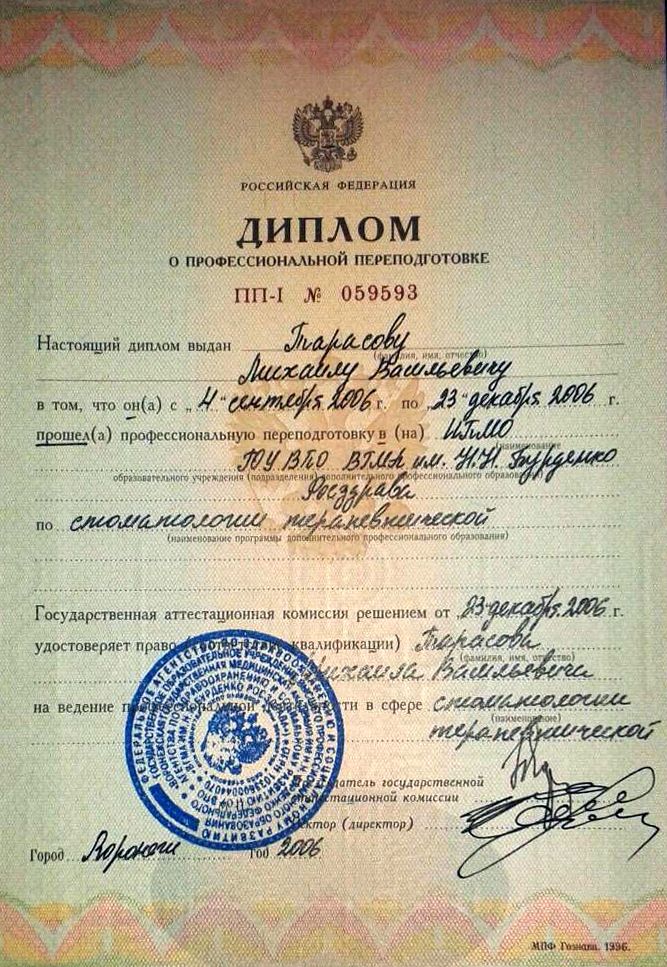 РОССИЙСКАЯ ФЕДЕРАЦИЯ
ДИПЛОМ
О ПРОФЕССИОНАЛЬНОЙ ПЕРЕПОДГОТОВКЕ
ПП-I № 059593
Настоящий диплом выдан Тарасову
(фамилия, имя, отчество)
Михаилу Васильевичу
в том, что он(а) с „4" сентября 2006 г. по „23" декабря 2006 г.
прошел(а) профессиональную переподготовку в (на) ИПМО
(наименование
ГОУ ВПО ВГМА им. Н.Н. Бурденко
образовательного учреждения (подразделения) дополнительного профессионального образования)
Росздрава
по стоматологии терапевтической
(наименование программы дополнительного профессионального образования)
Государственная аттестационная комиссия решением от „23" декабря 2006 г.
удостоверяет право квалификации) Тарасова
(фамилия, имя, отчество)
Михаила Васильевича
на ведение профессиональной деятельности в сфере стоматологии
(наименование)
терапевтической
Председатель государственной
аттестационной комиссии
Ректор (директор)
Город Воронеж Год 2006
МПФ Гознака. 1996.